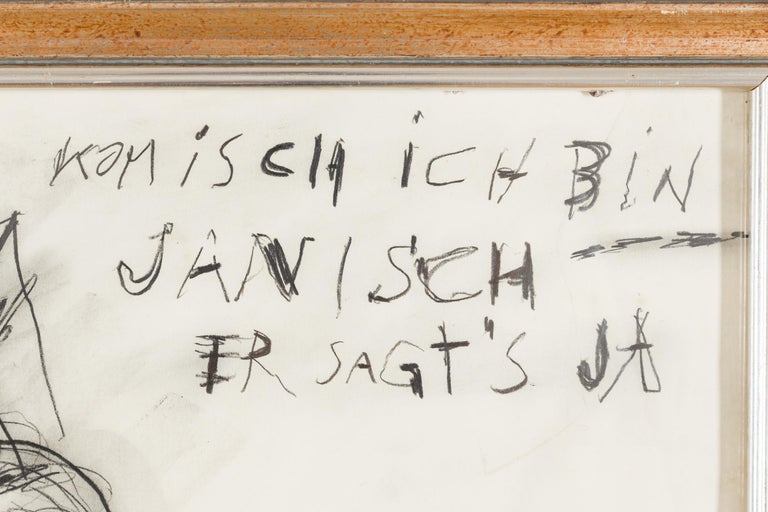 KOMISCH ICH BIN
JANISCH
ER SAGT'S JA